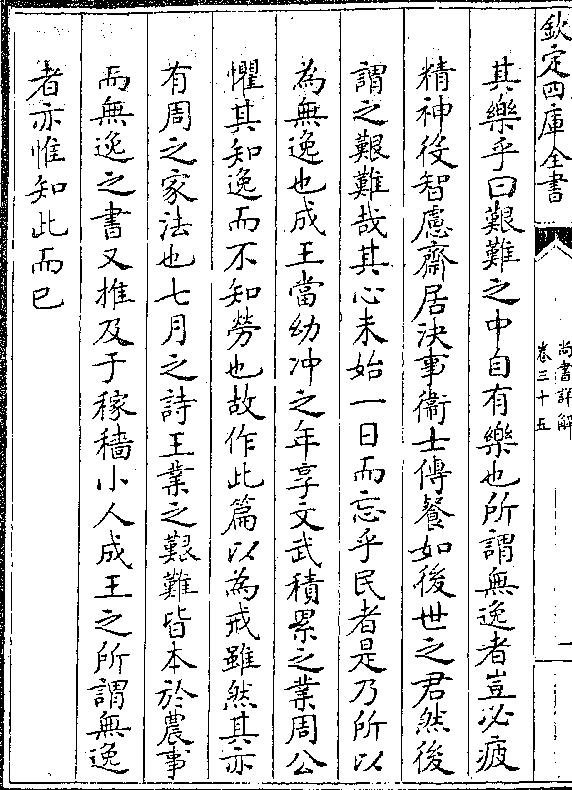 欽定四庫全書
尚書詳解
卷三十五
其樂乎曰艱難之中自有樂也所謂無逸者豈必疲
精神役智慮齋居決事衞士傳餐如後世之君然後
謂之艱難哉其心未始一日而忘乎民者是乃所以
為無逸也成王當幼冲之年享文武積累之業周公
懼其知逸而不知勞也故作此篇以為戒雖然其亦
有周之家法也七月之詩王業之艱難皆本於農事
而無逸之書又推及于稼穡小人成王之所謂無逸
者亦惟知此而已